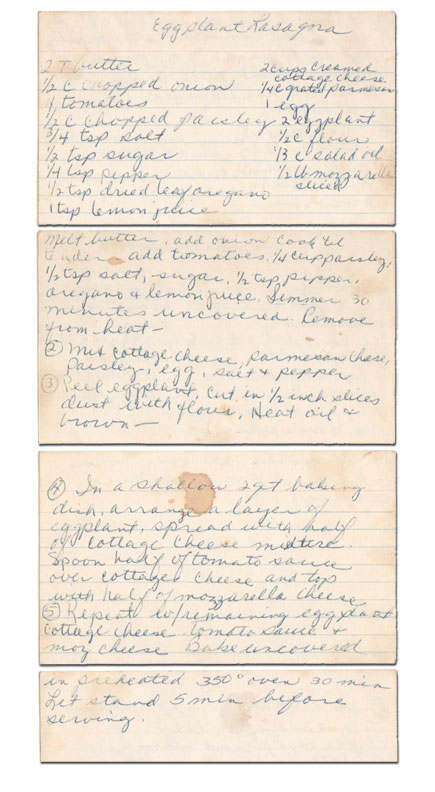 Eggplant Lasagna
2 T butter
1/2 c chopped onion
tomatoes
1/2 c chopped parsley
3/4 tsp salt
1/2 tsp sugar
1/4 tsp pepper
1/2 tsp dried leaf oregano
1 tsp lemon juice
2 cups creamed
cottage cheese
1/4 c grated parmesan
1 egg
2 eggplant
1/2 c flour
1/3 c salad oil
1/2 lb mozzarella
sliced
Melt butter, add onion cook 'til
tender add tomatoes, 1/4 cup parsley,
1/2 tsp salt, sugar, 1/2 tsp pepper,
oregano & lemon juice. Simmer 30
minutes uncovered. Remove
from heat —
② Mix cottage cheese, parmesan cheese,
parsley, egg, salt & pepper
③ Peel eggplant, cut in 1/2 inch slices
dust with flour, Heat oil &
brown —
④ In a shallow 2 qt baking
dish, arrange a layer of
eggplant, spread with half
of cottage cheese mixture.
Spoon half of tomato sauce
over cottage cheese and top
with half of mozzarella cheese
⑤ Repeat w/remaining eggplant
cottage cheese tomato sauce &
moz cheese Bake uncovered
in preheated 350° oven 30 min
Let stand 5 min before
serving.